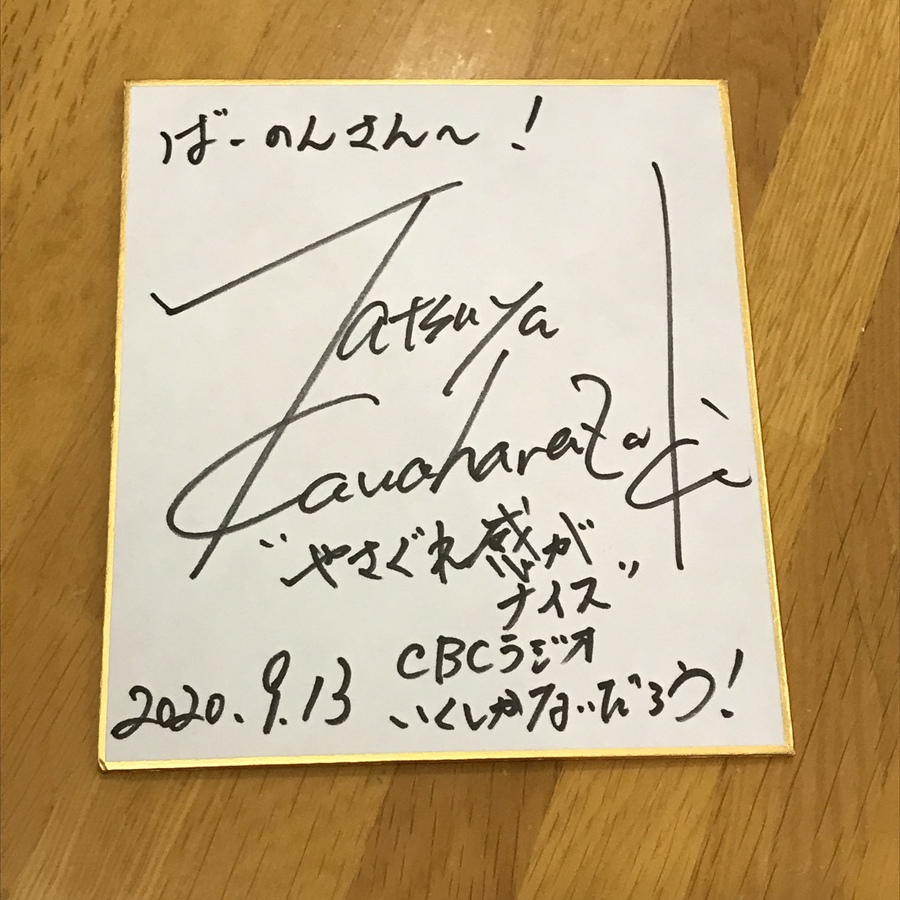 ばーのんさん〜!
Tatsuya
Kawaharazaki
"やさぐれ感が
ナイス"
CBCラジオ
いくしかないだろう!
2020.9.13